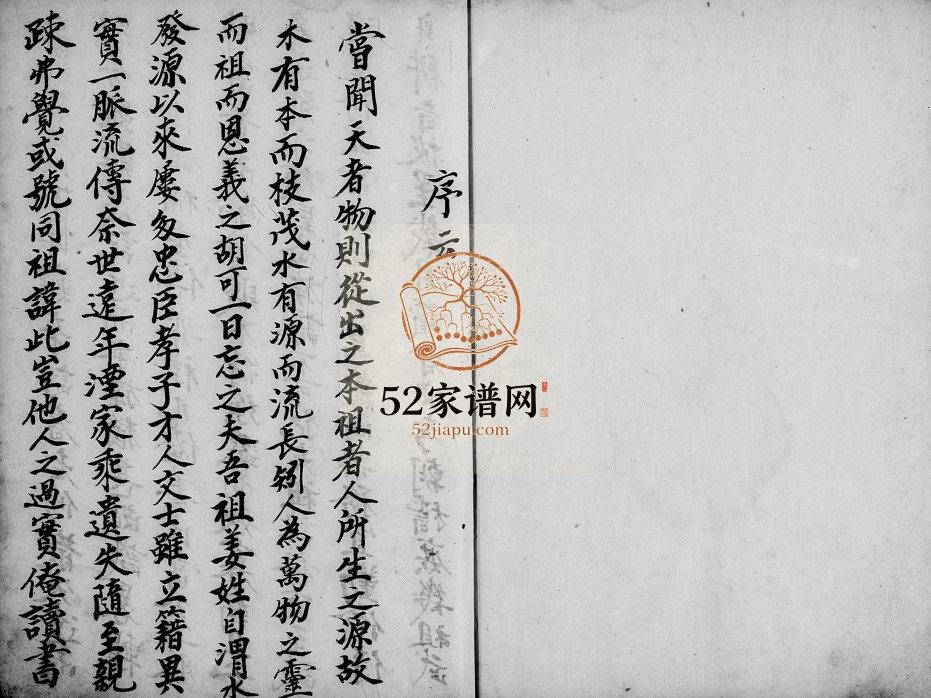 序云
嘗聞天者物則從出之本祖者人所生之源故
木有本而枝茂水有源而流長矧人為萬物之靈
而祖而恩義之胡可一日忘之夫吾祖姜姓自渭水
發源以來屢多忠臣孝子才人文士雖立籍異
實一脈流傳奈世遠年湮家乘遺失隨至親
疎弗覺或號同祖諱此豈他人之過實俺讀書
52家谱网
52jiapu.com